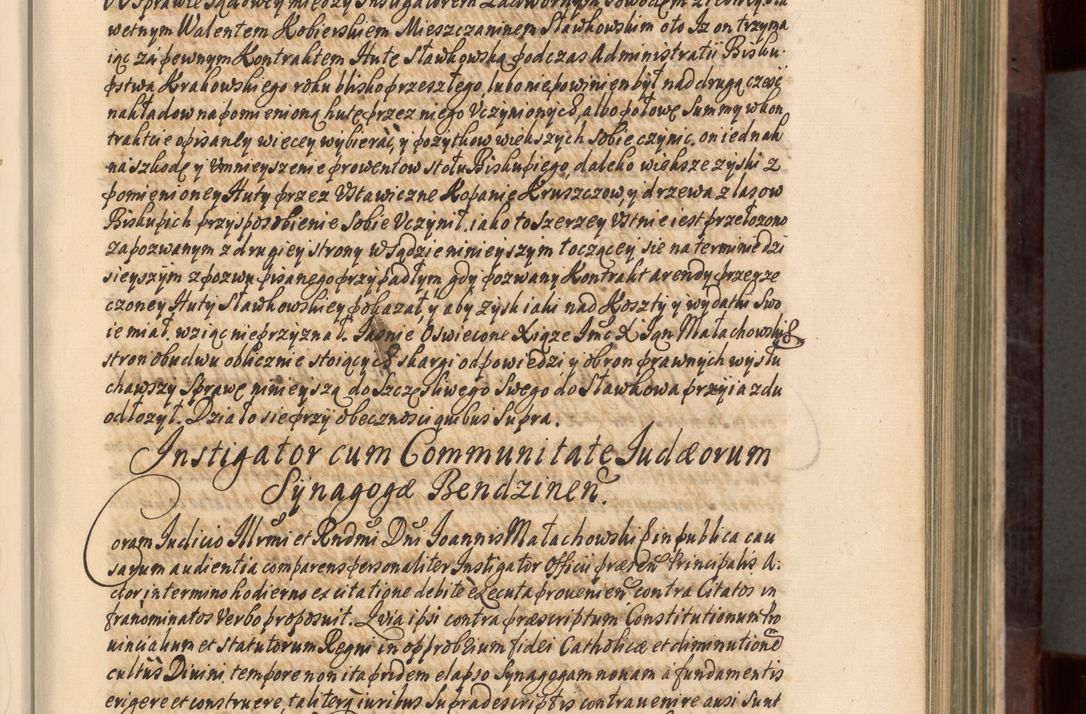 W Sprawie Sądowey między Instigatorem Zadwornym Powodem z iedney, Sła
wetnym Walentem Kobierskiem Mieszczaninem Sławkowskim oto Iz on trzyma
iąc zá pewnym Kontraktem Hutę Sławkowską podczas Administratii Bisku
pstwa Krakowskiego roku blisko przeszłego, lubo nie powinien był nad drugą częsć
nakładow na pomienioną hutę przez niego Uczynionych, albo połowę Summy w kon
trakcie opisaney więcey wybierać y pożytkow większych sobie czynic, on iednak
na szkodę y Vmnieyszenie prowentow stołu Biskupiego, daleko większe zyski z
pomienioney Huty przez Vstawiczne Kopanie Kruszczow, y drzewa z lasow
Biskupich przysposobienie sobie Uczynił. iako to Szerzey Vstnie iest przełozono
zapozwanym z drugiey strony w Sądzie ninieyszym toczącey się na terminie dzi
sieyszym z pozwu pisanego przypadłym gdy pozwany Kontrakt arendy przerze
czoney Huty Sławkowskiey pokazał y aby zysk iaki nad Koszty y wydatki Swo
ie miał wziąc nie przyznał. Jasnie Oswiecone Xiąze Jmc X Jan Małachowski B
stron obudwu oblicznie stoiących skargi odpowiedzi y obron prawnych wysłu
chawszy Sprawę ninieyszą do Szczęśliwego Swego do Sławkowa przyiazdu
odłozył. Działo się przy obecnosci quibus Supra.
Instigator cum Communitate Judæorum
Synagogæ Bendzinen.
Coram Judicio Illrmi et Rndmi Dni Joannis Małachowski E in publica cau
sarum audientia comparens personaliter Instigator Officii præsen Principalis A.
ctor in termino hodierno ex citatione debite executa provenien contra Citatos in
franominatos Verbo proposuit. Quia ipsi contra præscriptum Constitutionum Pro
vincialium et Statutorum Regni in opprobrium fidei Catholicæ et diminutionem
cultus Divini tempore non ita pridem elapso Synagogam novam a fundamentis
erigere et construere, taliterq iuribus Supradescriptis contravenire ausi Sunt